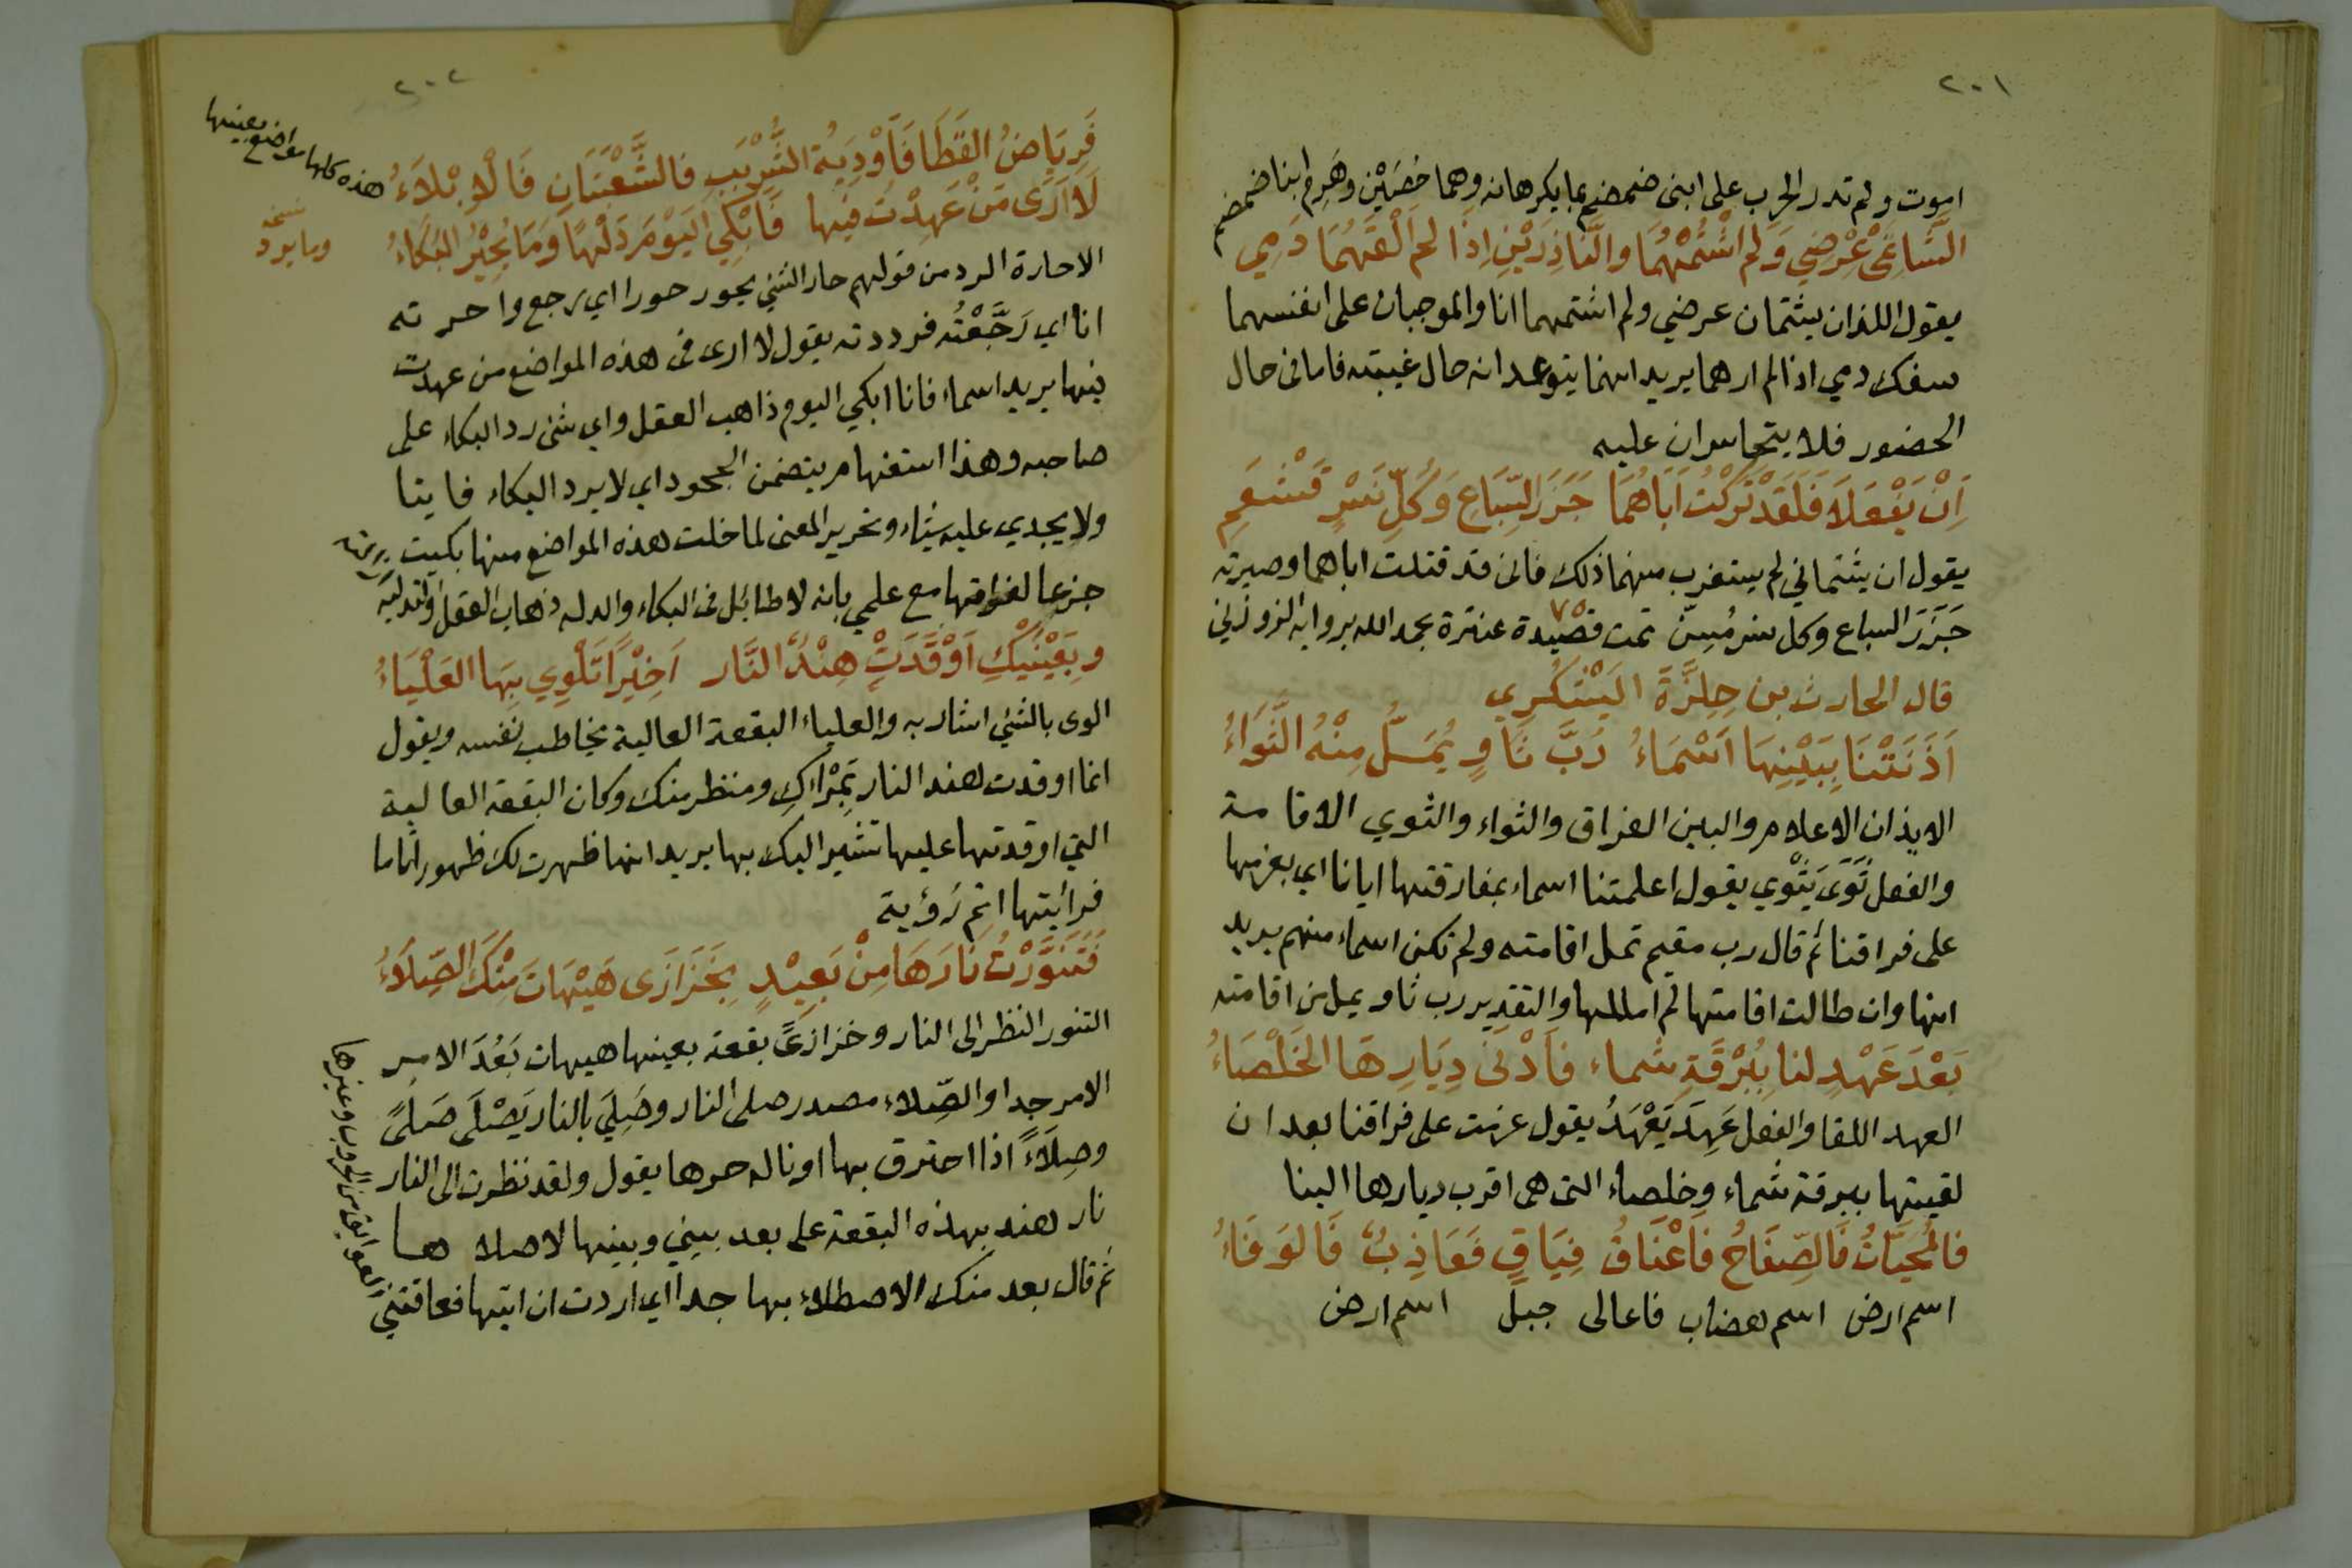 ٢٠١
اموت ولم تدر الحرب على ابنى ضمضم بما يكرهانه وهما حُصَيْن وهَرِم ابنا ضمضم
الشَّاتِمَيْ عِرْضِي وَلم اَشْتُمْهُمَا والنَّاذِرَيْنِ اِذَا لم اَلْقَهُمَا دَمِي
يقول اللذان يشتمان عرضي ولم اشتمهما انا والموجبان على انفسهما
سفك دمي اذا لم ارهما يريد انهما يتوعدانه حال غيبته فاما فى حال
الحضور فلا يتجاسران عليه
اَنْ يَفْعَلاَ فَلَقَدْ تَرَكْتُ اَبَاهُمَا جَزَرَ السِّبَاعِ وَكُلِّ نَسْرٍ قَشْعَمِ
يقول ان يشتماني لم يستغرب منهما ذلك فانى قد قتلت اباهما وصيرته
جَزَرَ السباع وكل نسر مُسِنّ تمت قصيدة عنترة بحمد الله برواية الزوزني
٧٥
قال الحارث بن حِلِزَّةَ اليَشْكُرِي
اَذَنَتْنَا بِبَيْنِهَا اَسْمَاءُ رُبَّ ثَاوٍ يُمَلُّ مِنْهُ الثَّوَاءُ
الايذان الاعلام والبين الفراق والثواء والثوي الاقامة
والفعل ثَوَى يَثْوي يقول اعلمتنا اسماء بمفارقتها ايانا اي بعزمها
على فراقنا ثم قال رب مقيم تمل اقامته ولم تكن اسماء منهم يريد
انها وان طالت اقامتها لم املها والتقدير رب ثاو يمل من اقامته
بَعْدَ عَهْدٍ لنا بِبُرْقَةِ شماء فَاَدْنَى دِيَارِهَا الخَلْصَاءُ
العهد اللقا والفعل عَهِدَ يَعْهَدُ يقول عزمت على فراقنا بعد ان
لقيتها ببرقة شماء وخلصاء التى هى اقرب ديارها الينا
فالمُحَيَّاتُ فَالصِّفَاحُ فَاَعْنَاقُ فِتَاقٍ فَعَاذِبُ فَالوَفَاءُ
اسم ارض اسم هضاب فاعالى جبل اسم ارض
٢٠٢
فَرِيَاضُ القَطَا فَاَوْدِيَةُ الشُّرْبَبِ فالشُّعْبَتَانِ فَالاَبْلاَءُ
هذه كلها مواضع بعينها
لاَ اَرَى مَنْ عَهِدْتُ فيها فَاَبْكِي اليَوْمَ دَلْهًا وَمَا يُحِيْرُ البُكَاءُ
نسخه
وما يرد
الاحارة الرد من قولهم حار الشئ يحور حورا اي رجع واحرته
انا اي رَجَّعْتُه فرددته يقول لا ارى فى هذه المواضع من عهدت
فيها يريد اسماء فانا ابكي اليوم ذاهب العقل واي شئ رد البكاء على
صاحبه وهذا استفهام يتضمن الجحود اي لا يرد البكاء فايتا
ولا يجدي عليه شيئاء وتحرير المعنى لما خلت هذه المواضع منها بكيت
جزعا لفراقتها مع علمي بانه لا طائل فى البكاء والدله ذهاب العقل
وبِعَيْنَيْكِ اَوْقَدَتْ هِنْدٌ النَّار اَخِيْرًا تَلْوِي بِهَا العَلْيَاءُ
الوى بالشئ اشار به والعلياء البقعة العالية يخاطب نفسه ويقول
انما اوقدت هند النار بِمَرْاكِ ومنظر منك وكان البقعة العالية
التي اوقدتها عليها تشير اليك بها يريد انها ظهرت لك ظهورا تاما
فرائيتها اتم رؤية
فَتَنَوَّرْتُ نَارَهَا مِنْ بَعِيْدٍ بِخَزَازَى هَيْهَاتَ مِنْكَ الصِّلاَءُ
التنور النظر الى النار وخزازىً بقعة بعينها هيهات بَعُدَ الامر
الامر جدا والصِّلاء مصدر صلى النار وصَلِيَ بالنار يَصْلَى صَلىً
وصِلاَءً اذا احترق بها او ناله حرها يقول ولقد نظرت الى النار
نار هند بهذه البقعة على بعد بيني وبينها لاصلاها
ثم قال بعد منك الاصطلاء بها جدا اي اردت ان اتيها فعاقتني
العوايق من الحروب وغيرها